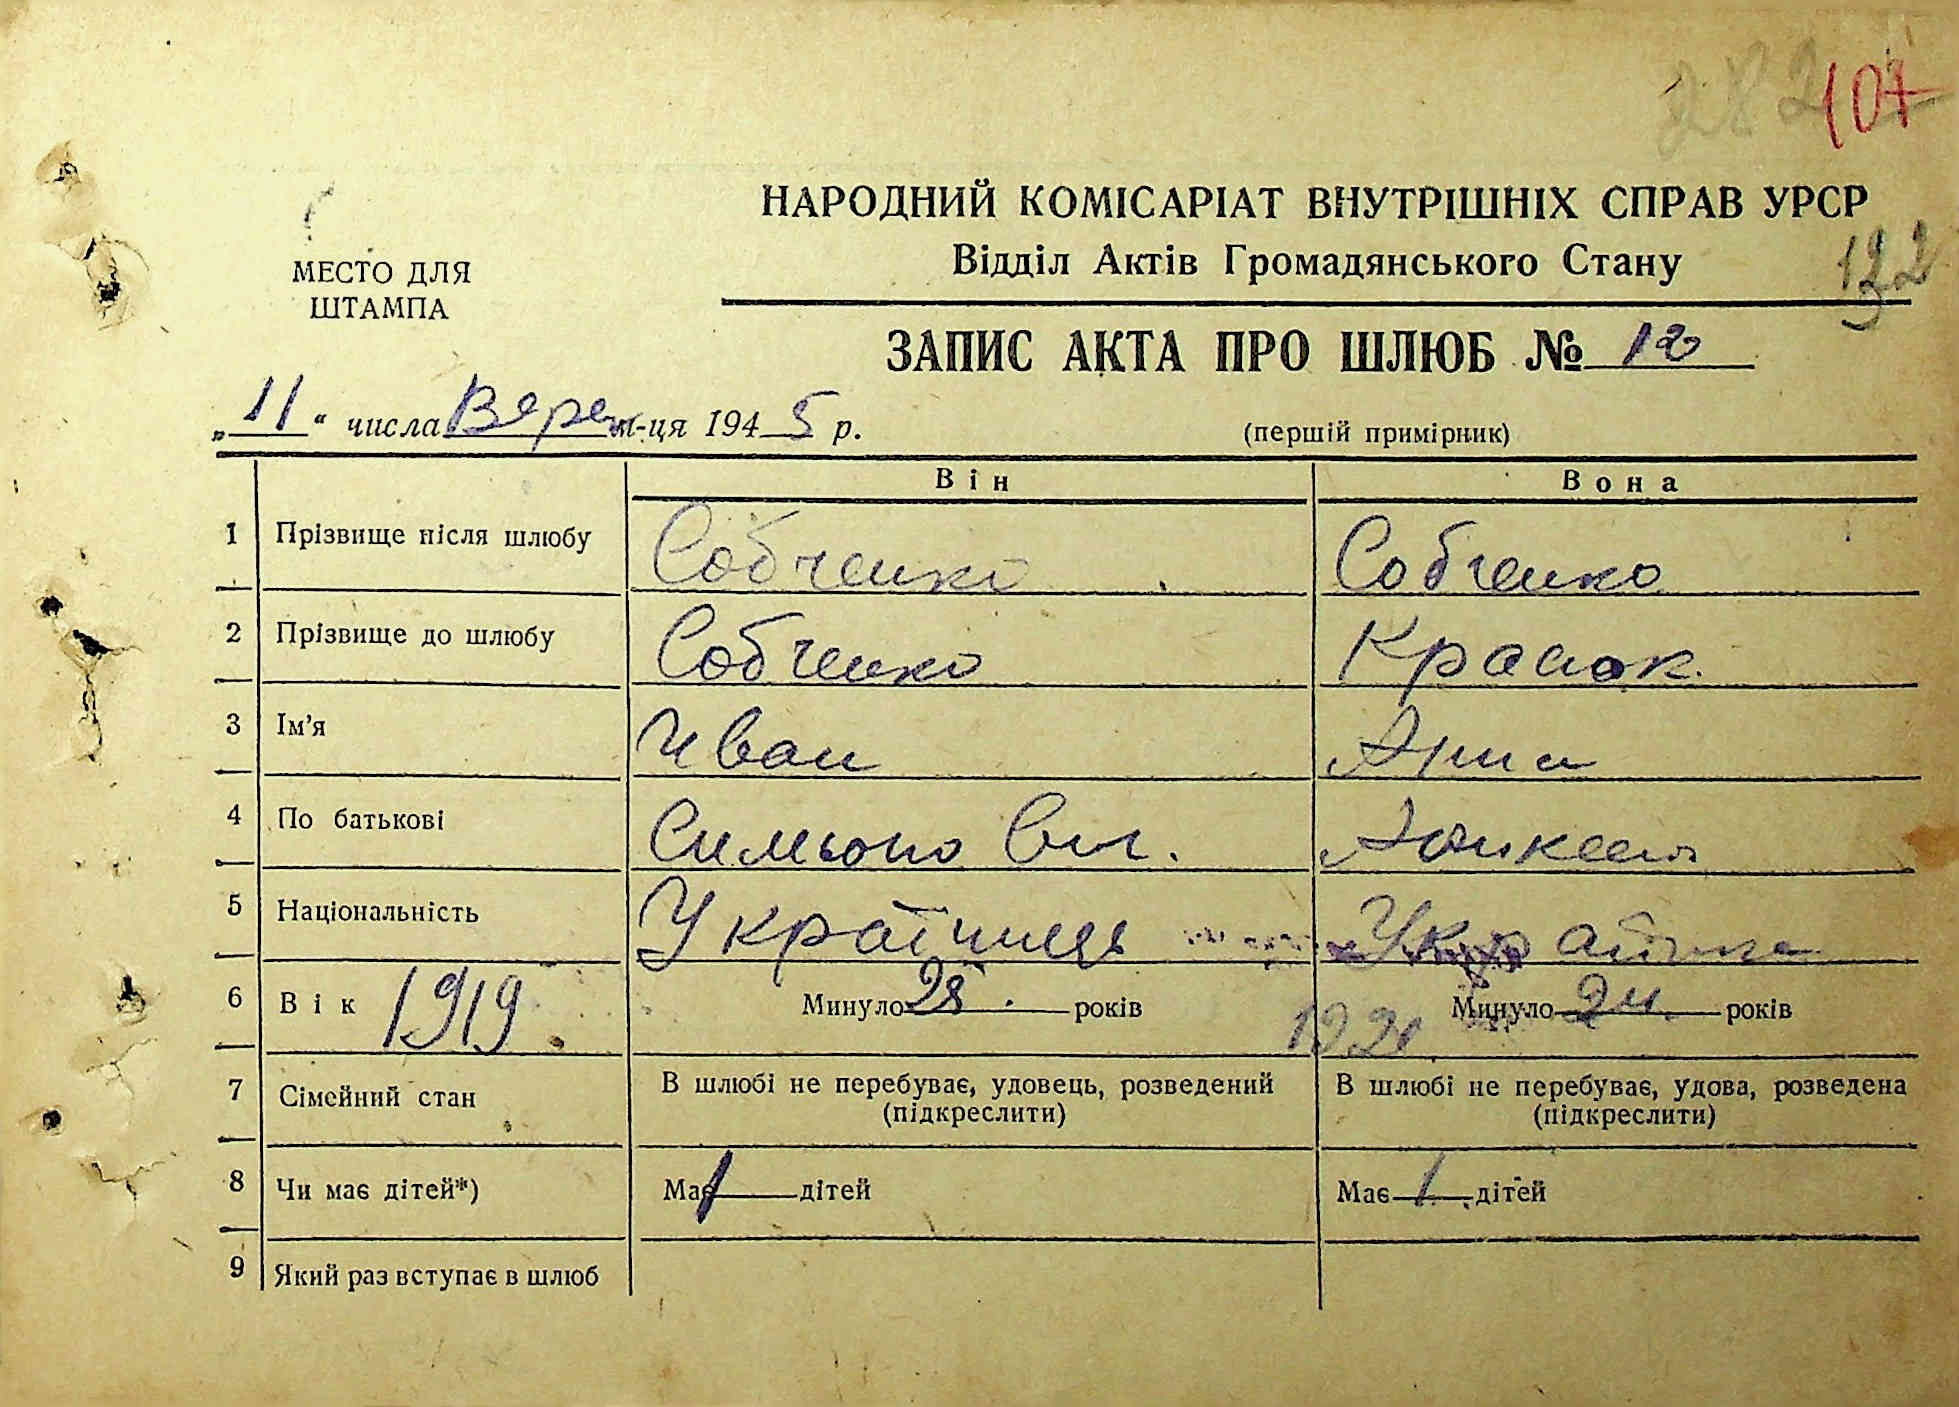 282 107
НАРОДНИЙ КОМІСАРІАТ ВНУТРІШНІХ СПРАВ УРСР
Відділ Актів Громадянського Стану
МЕСТО ДЛЯ
ШТАМПА
ЗАПИС АКТА ПРО ШЛЮБ № 12
„11“ числа Верес м-ця 1945 р.
(першій примірник)
Він Вона
1 Прізвище після шлюбу Собченко Собченко
2 Прізвище до шлюбу Собченко
3 Ім'я Иван Анна
4 По батькові Симьоно вич.
5 Національність Українець Українка
6 Вік 1919 Минуло 28 років Минуло 24 років
7 Сімейний стан В шлюбі не перебуває, удовець, розведений (підкреслити) В шлюбі не перебуває, удова, розведена (підкреслити)
8 Чи має дітей*) Має 1 дітей Має 1 дітей
9 Який раз вступає в шлюб